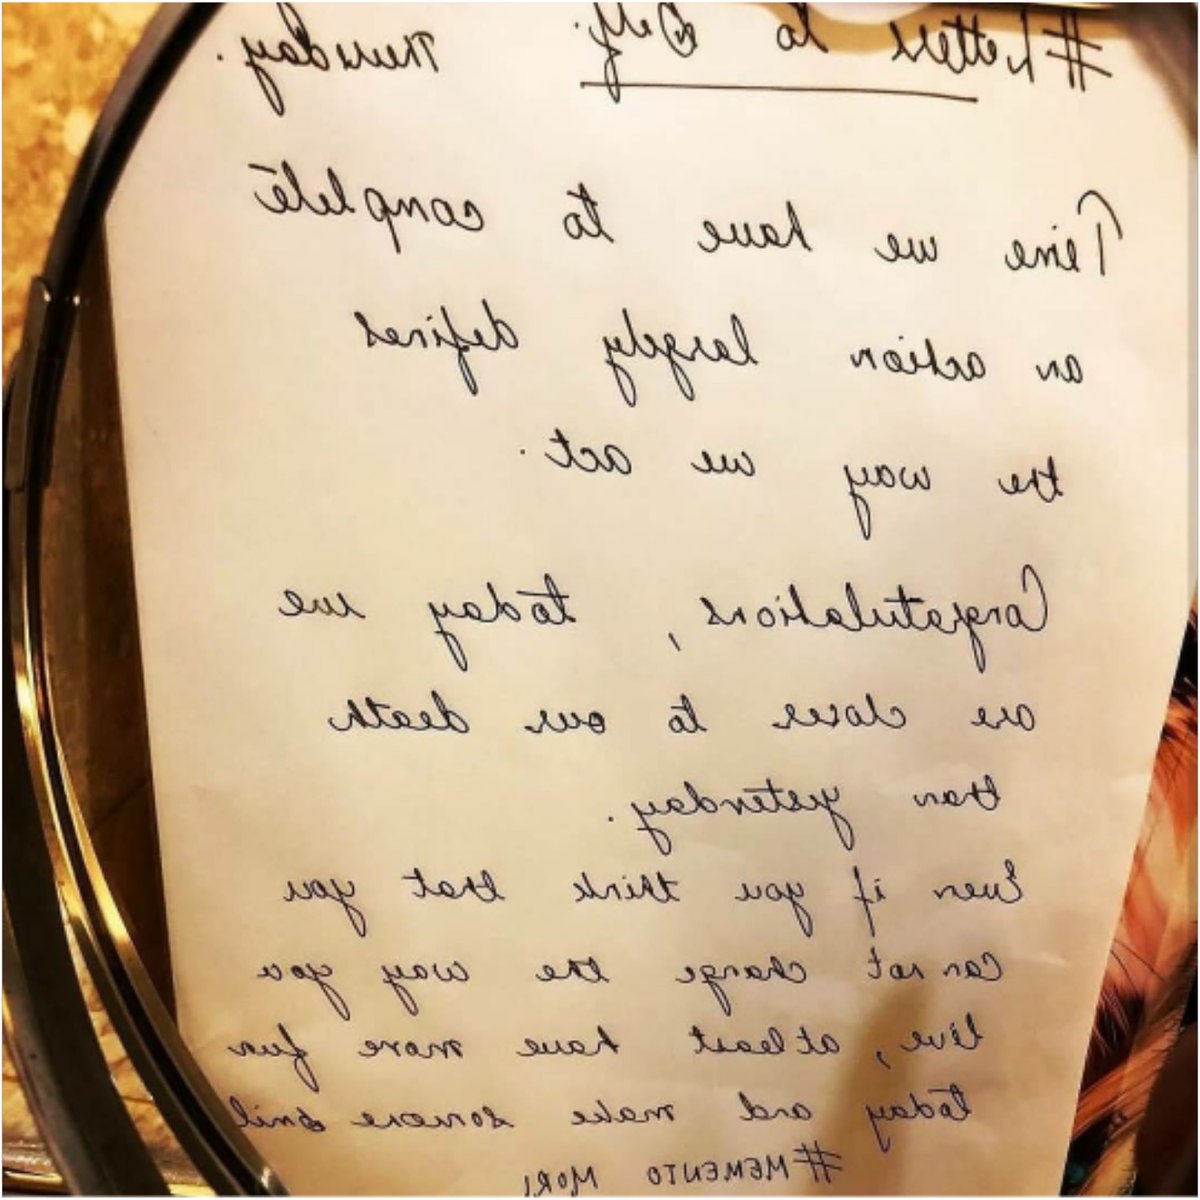 #Letters to Self. Thursday.
Time we have to complete
an action largely defines
the way we act.
Congratulations, today we
are closer to our death
than yesterday.
Even if you think that you
can not change the way you
live, atleast have more fun
today and make someone smil
#MEMENTO MORI